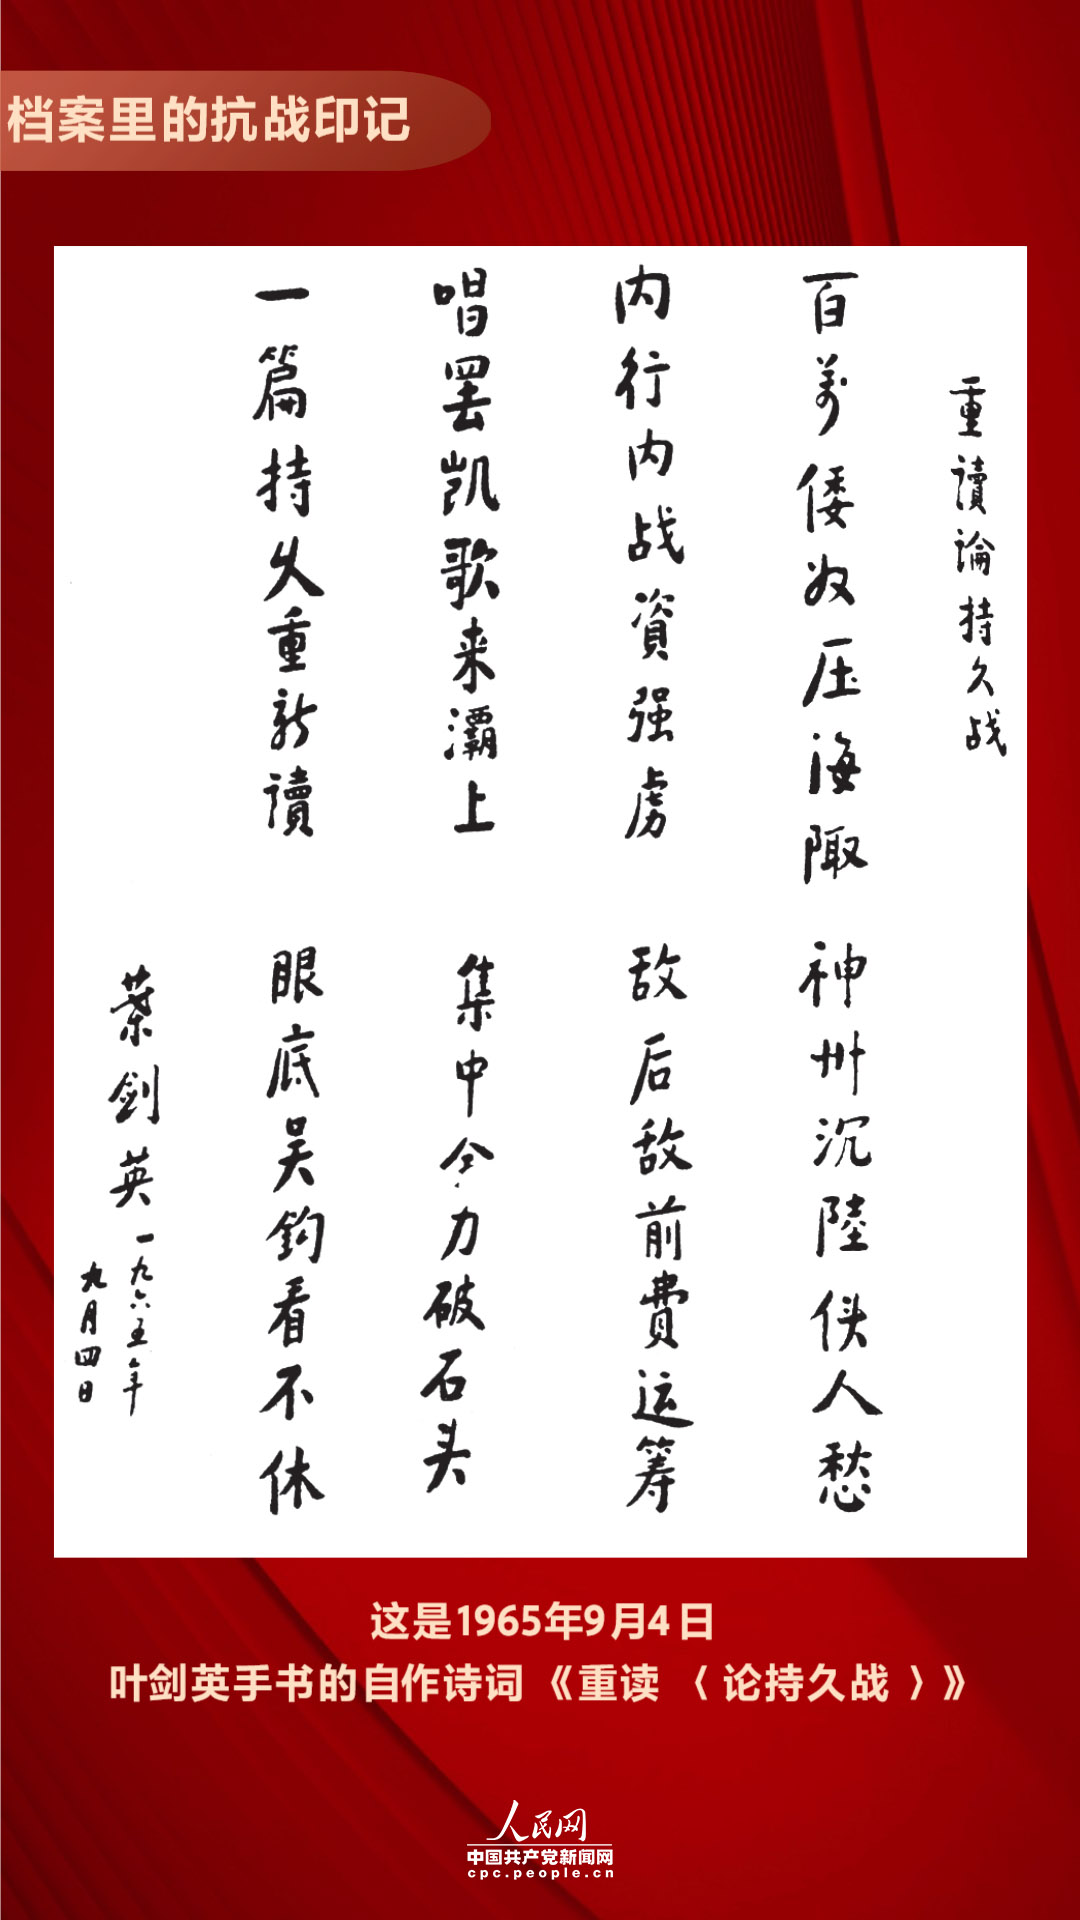 档案里的抗战印记
重讀論持久战
百萬倭奴压海陬 神州沉陸使人愁
内行内战資强虏 敌后敌前費运筹
唱罢凯歌来灞上 集中全力破石头
一篇持久重新讀 眼底吴鈎看不休
葉剑英 一九六五年
九月四日
这是1965年9月4日
叶剑英手书的自作诗词《重读〈论持久战〉》
人民网
中国共产党新闻网
cpc.people.cn